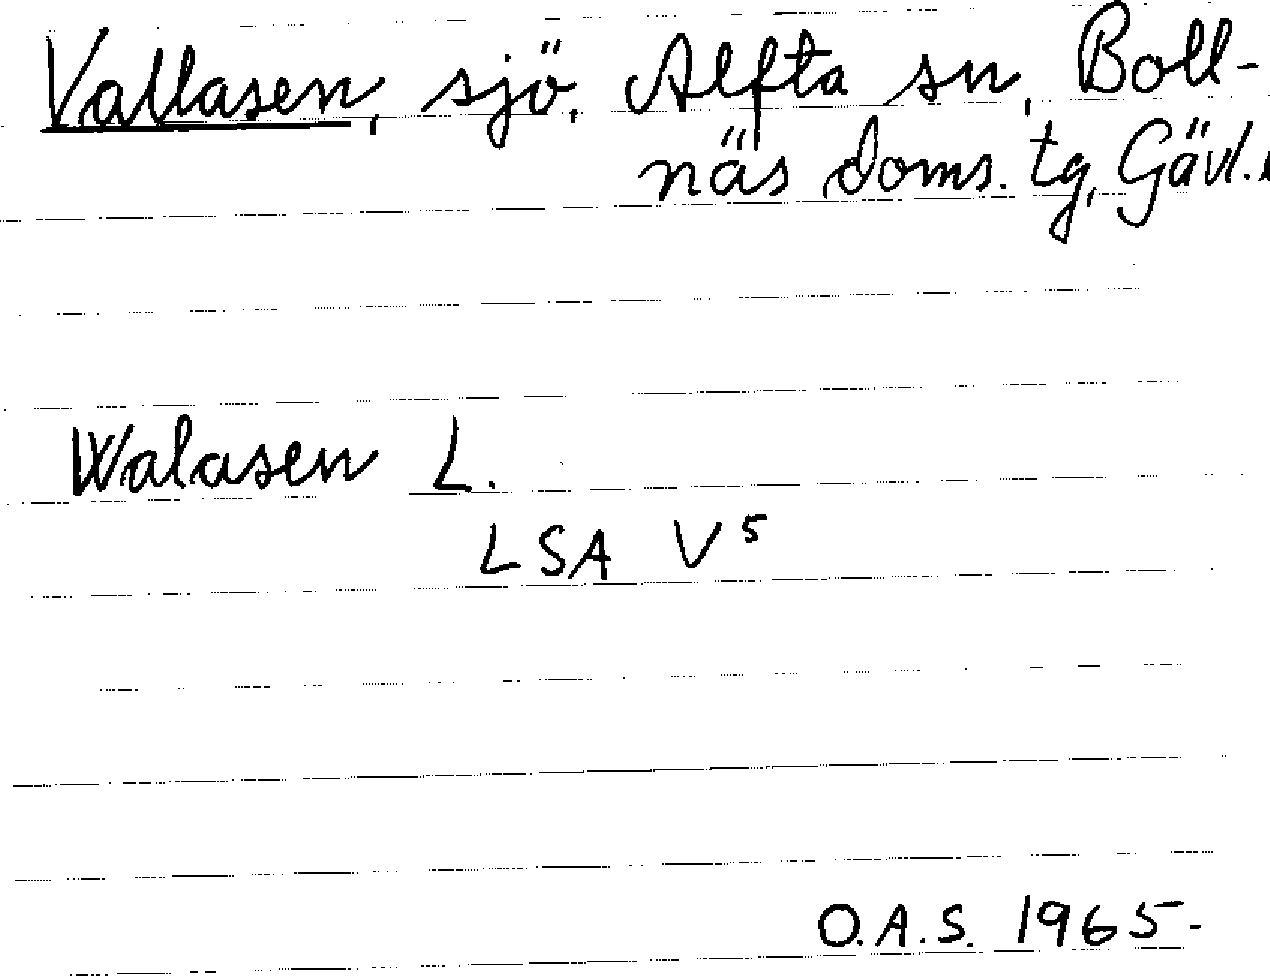 Vallasen, sjö, Alfta sn, Boll-
näs doms. tg, Gävl.
Walasen L.
LSA V⁵
O.A.S. 1965-